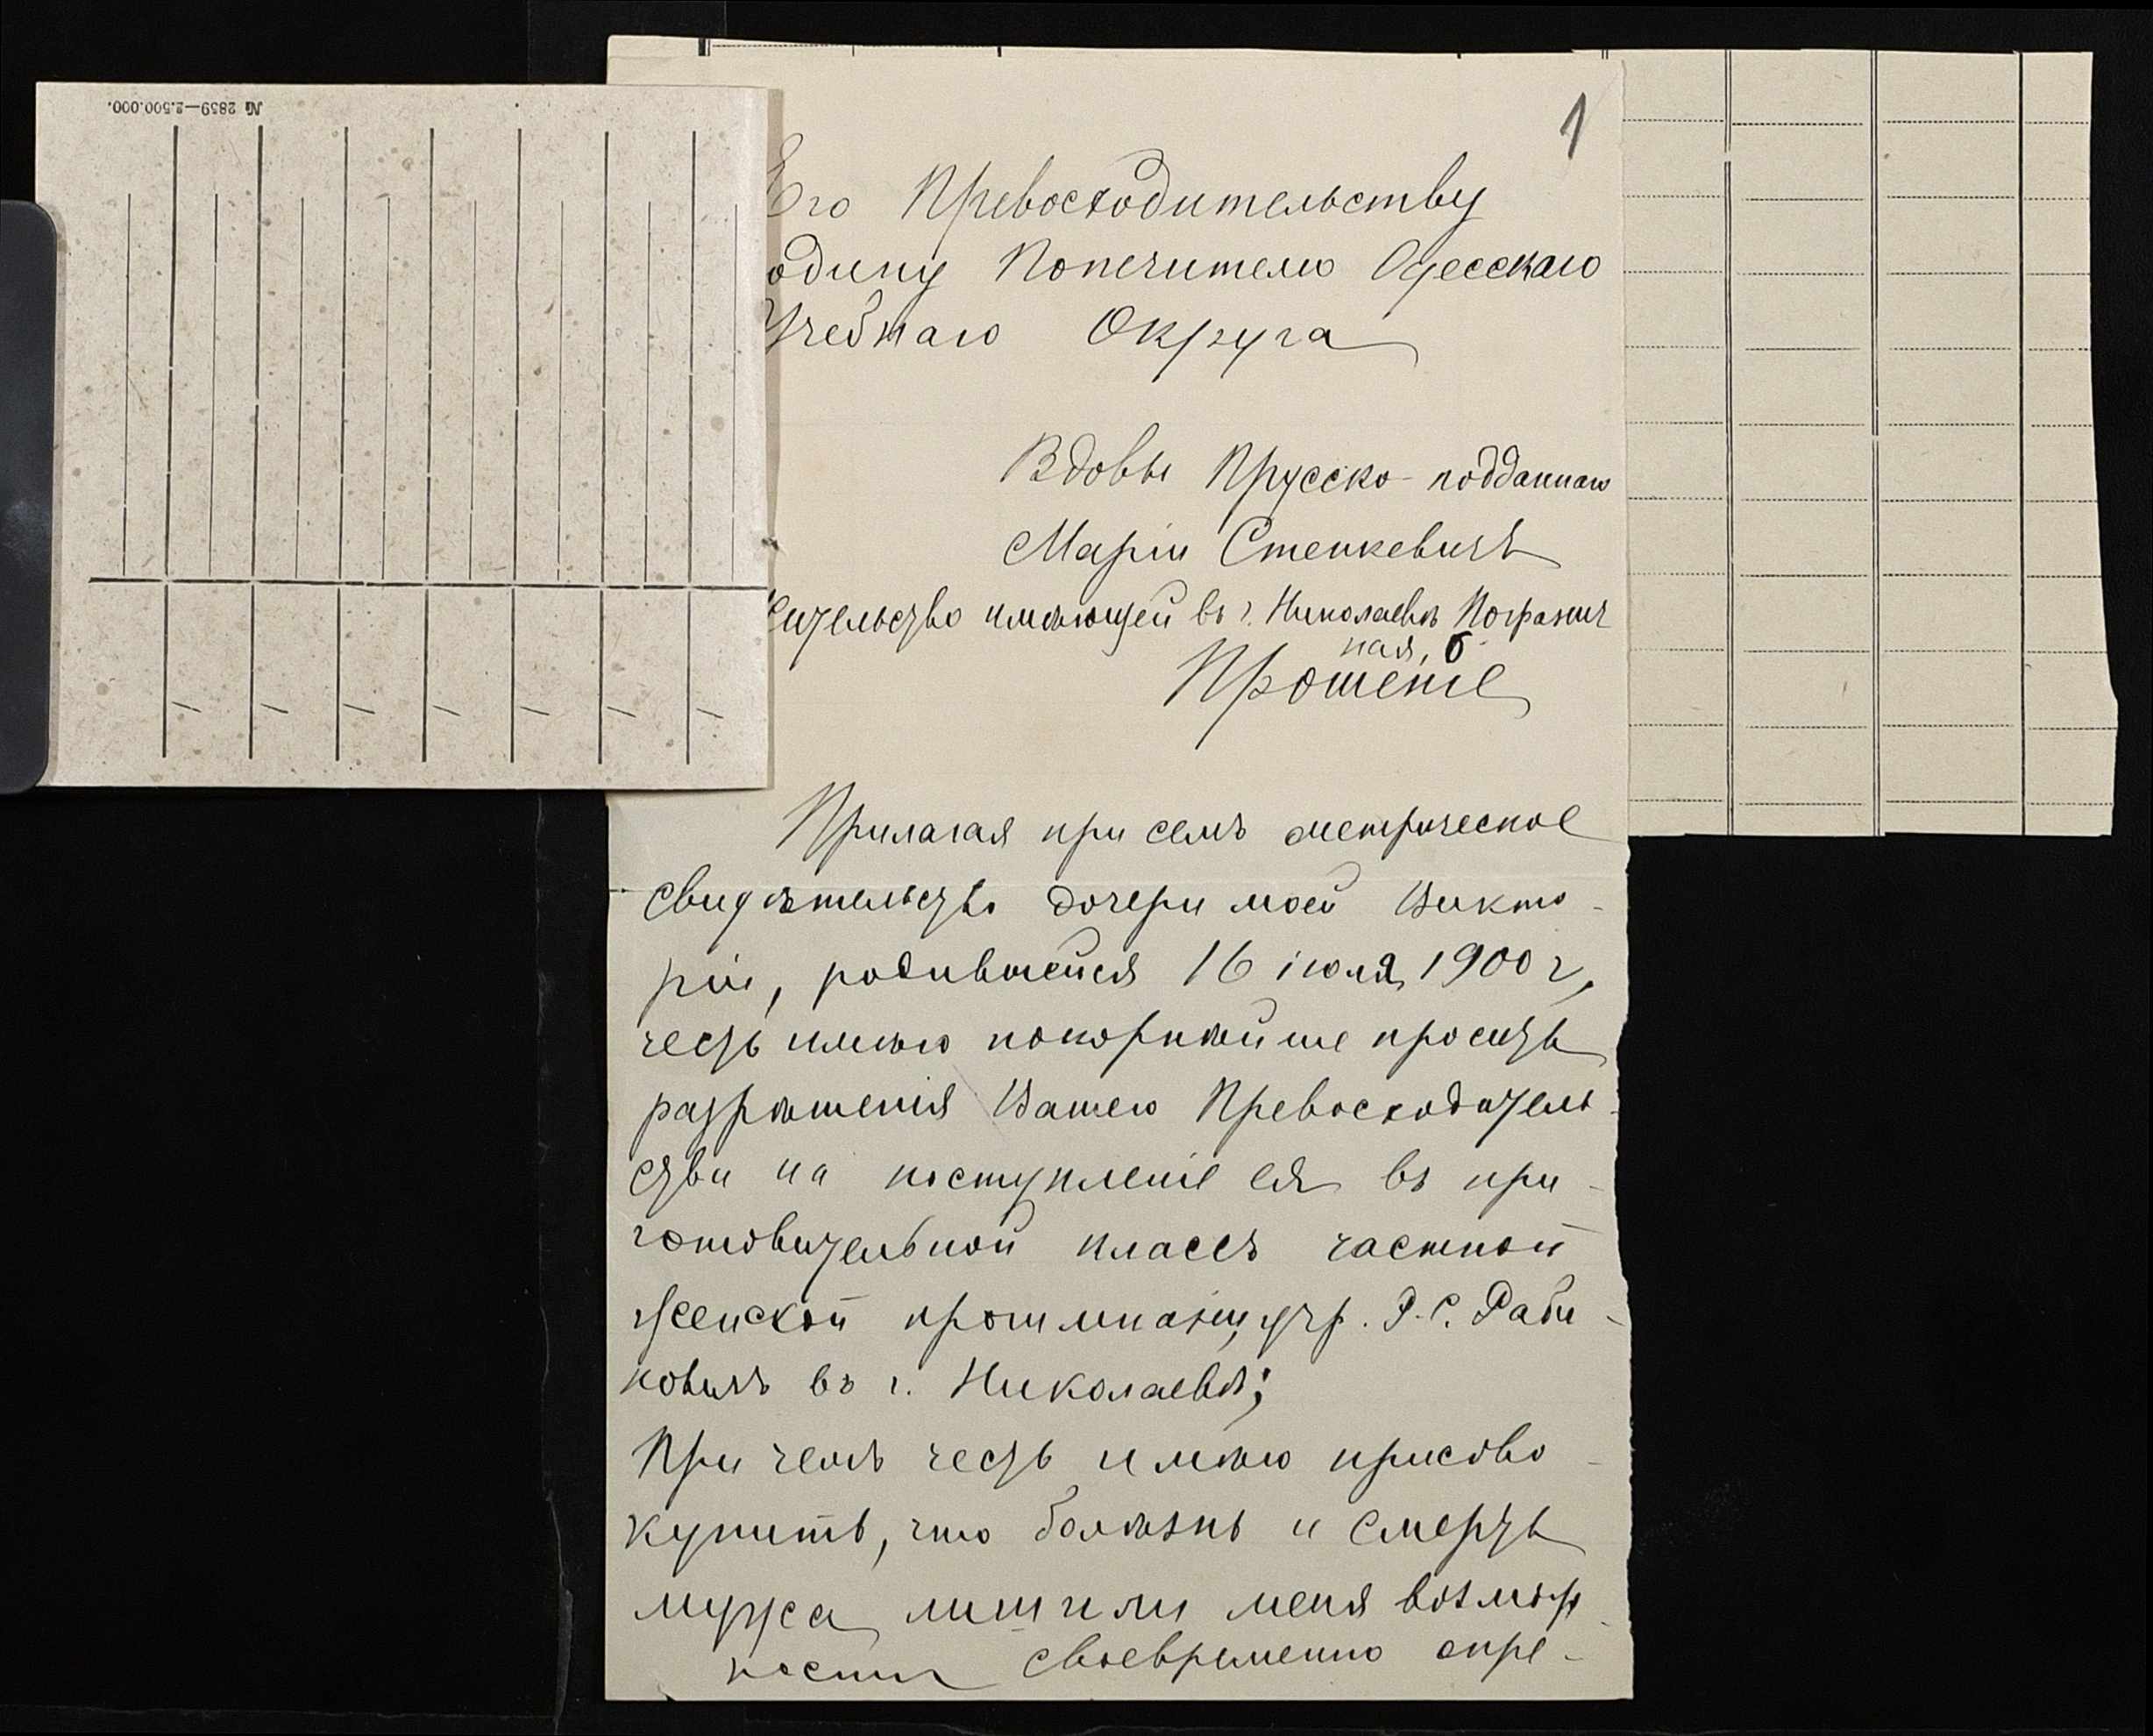 № 2859—2.500.000.
1
Его Превосходительству
одину Попечителю Одесскаго
Учебнаго Округа
Вдовы Прусско-подданнаго
Маріи Стенкевичъ
ительство имѣющей въ г. Николаевѣ Погранич
ная, 6
Прошеніе
Прилагая при семъ метрическое
свидѣтельство дочери моей Викто-
ріи, родившейся 16 іюля 1900 г,
честь имѣю покорнѣйше просить
разрѣшенія Вашего Превосходитель-
ства на поступленіе ея въ при-
готовительной классъ частной
женской прогимназіи, учр. Р. С. Раби-
новичъ въ г. Николаевѣ;
При чемъ честь имѣю присово-
купить, что болѣзнь и смерть
мужа лишили меня возмож-
ности своевременно опре-